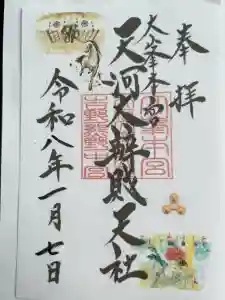 奉拝
大峯本宮
天河大辨財天社
令和八年一月七日